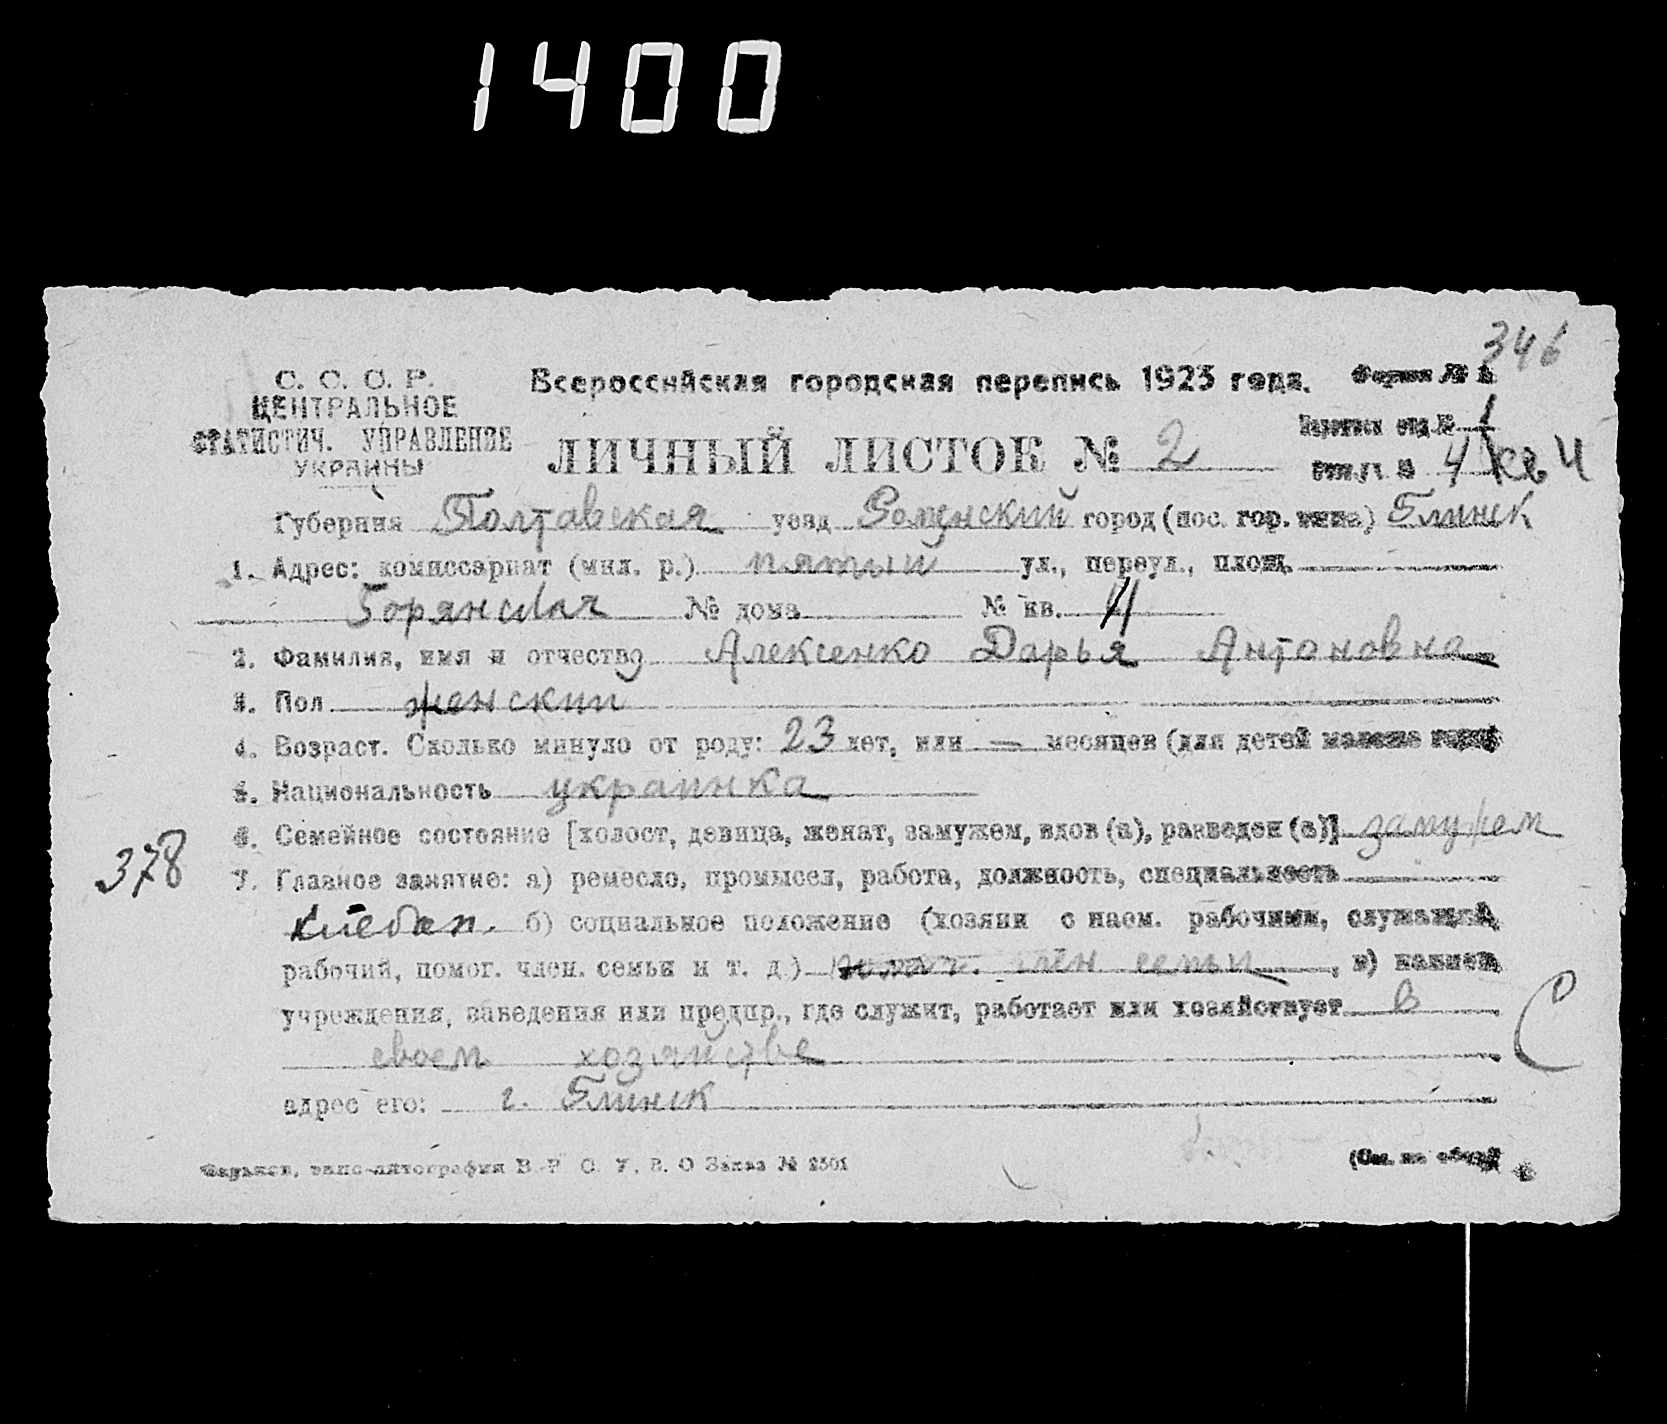 1400
346
С. С. С. Р.
ЦЕНТРАЛЬНОЕ
СТАТИСТИЧ. УПРАВЛЕНИЕ
УКРАИНЫ
Всероссийская городская перепись 1923 года. Форма №
ЛИЧНЫЙ ЛИСТОК № 2
отд. № 1
4 кв 4
Губерния Полтавская уезд Роменский город (пос. гор. типа) Глинск
1. Адрес: комиссариат (мил. р.) пятый ул., переул., площ.
№ дома № кв. 4
2. Фамилия, имя и отчество Алексенко Дарья Антоновна
3. Пол женский
4. Возраст. Сколько минуло от роду: 23 лет, или — месяцев (для детей
5. Национальность украинка
6. Семейное состояние [холост, девица, женат, замужем, вдов (а), разведен (а)] замужем
378
7. Главное занятие: а) ремесло, промысел, работа, должность, специальность
хлебоп. б) социальное положение (хозяин с наем. рабочими, служащий,
рабочий, помог. член. семьи и т. д.) помог. член семьи, в) название
учреждения, заведения или предпр., где служит, работает или хозяйствует в
своем хозяйстве
адрес его: г. Глинск
С
Харьков, типо-литография В. У. С. У. З. О Заказ № 2501
(См. на обор